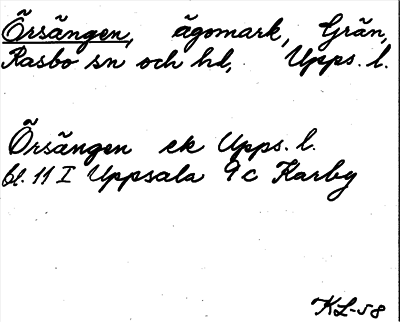 Örsängen, ägomark, Grän,
Rasbo sn och hd, Upps. l.
Örsängen ek Upps. l.
bl. 11 I Uppsala 9c Karby
KL-58